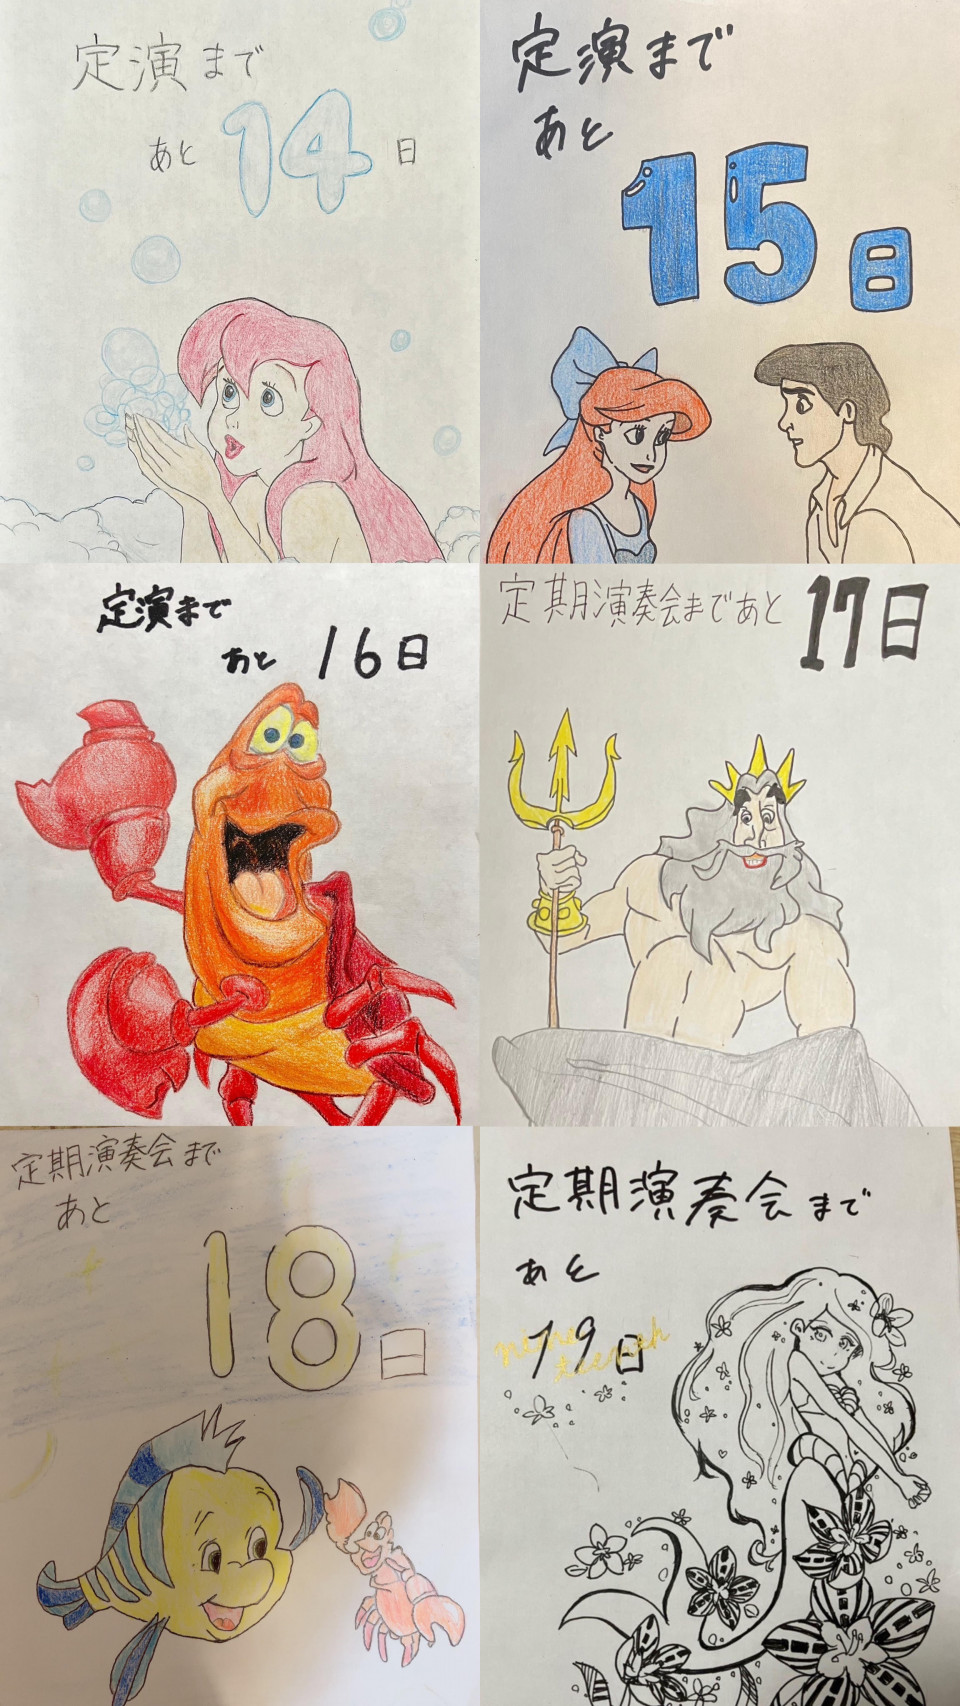 定演まで
あと 14 日
定演まで
あと
15日
定演まで
あと 16日
定期演奏会まであと 17日
定期演奏会まで
あと
18日
定期演奏会まで
あと
19日
nine
teenth